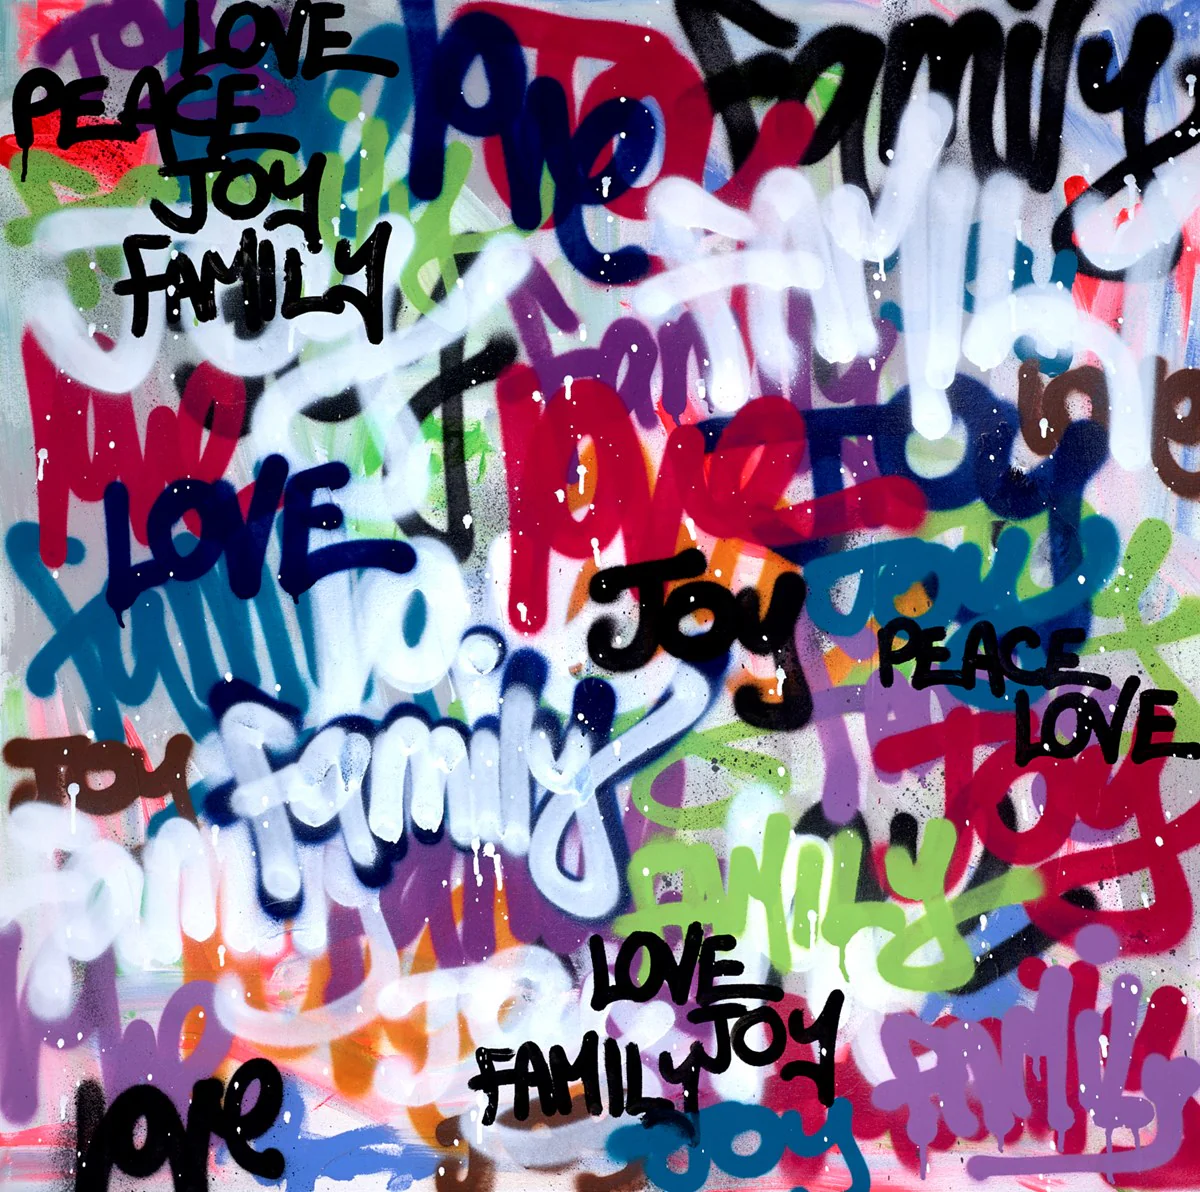 LOVE
PEACE
JOY
FAMILY
love
family
family
family
love
love
love
JOY
LOVE
JOY
JOY
PEACE
LOVE
family
family
JOY
JOY
family
FAMILY
LOVE
JOY
FAMILY
FAMILY
love
love
JOY